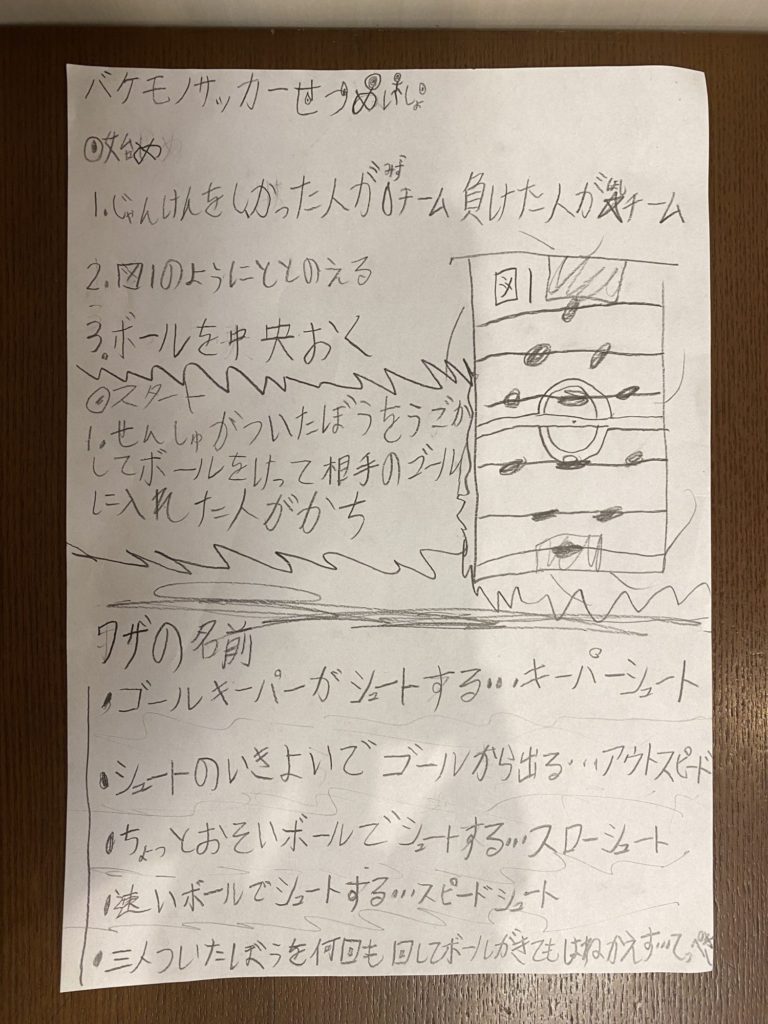 バケモノサッカーせつめい
始め
1.じゃんけんをしかった人がみずチーム 負けた人がチーム
2.図1のようにととのえる
図1
3.ボールを中央おく
スタート
1.せんしゅがついたぼうをうごか
してボールをけって相手のゴール
に入れた人がかち
ワザの名前
・ゴールキーパーがシュートする…キーパーシュート
・シュートのいきよいでゴールから出る…アウトスピード
・ちょっとおそいボールでシュートする…スローシュート
・速いボールでシュートする…スピードシュート
・三人ついたぼうを何回も回してボールがきてもはねかえす…てっぺき